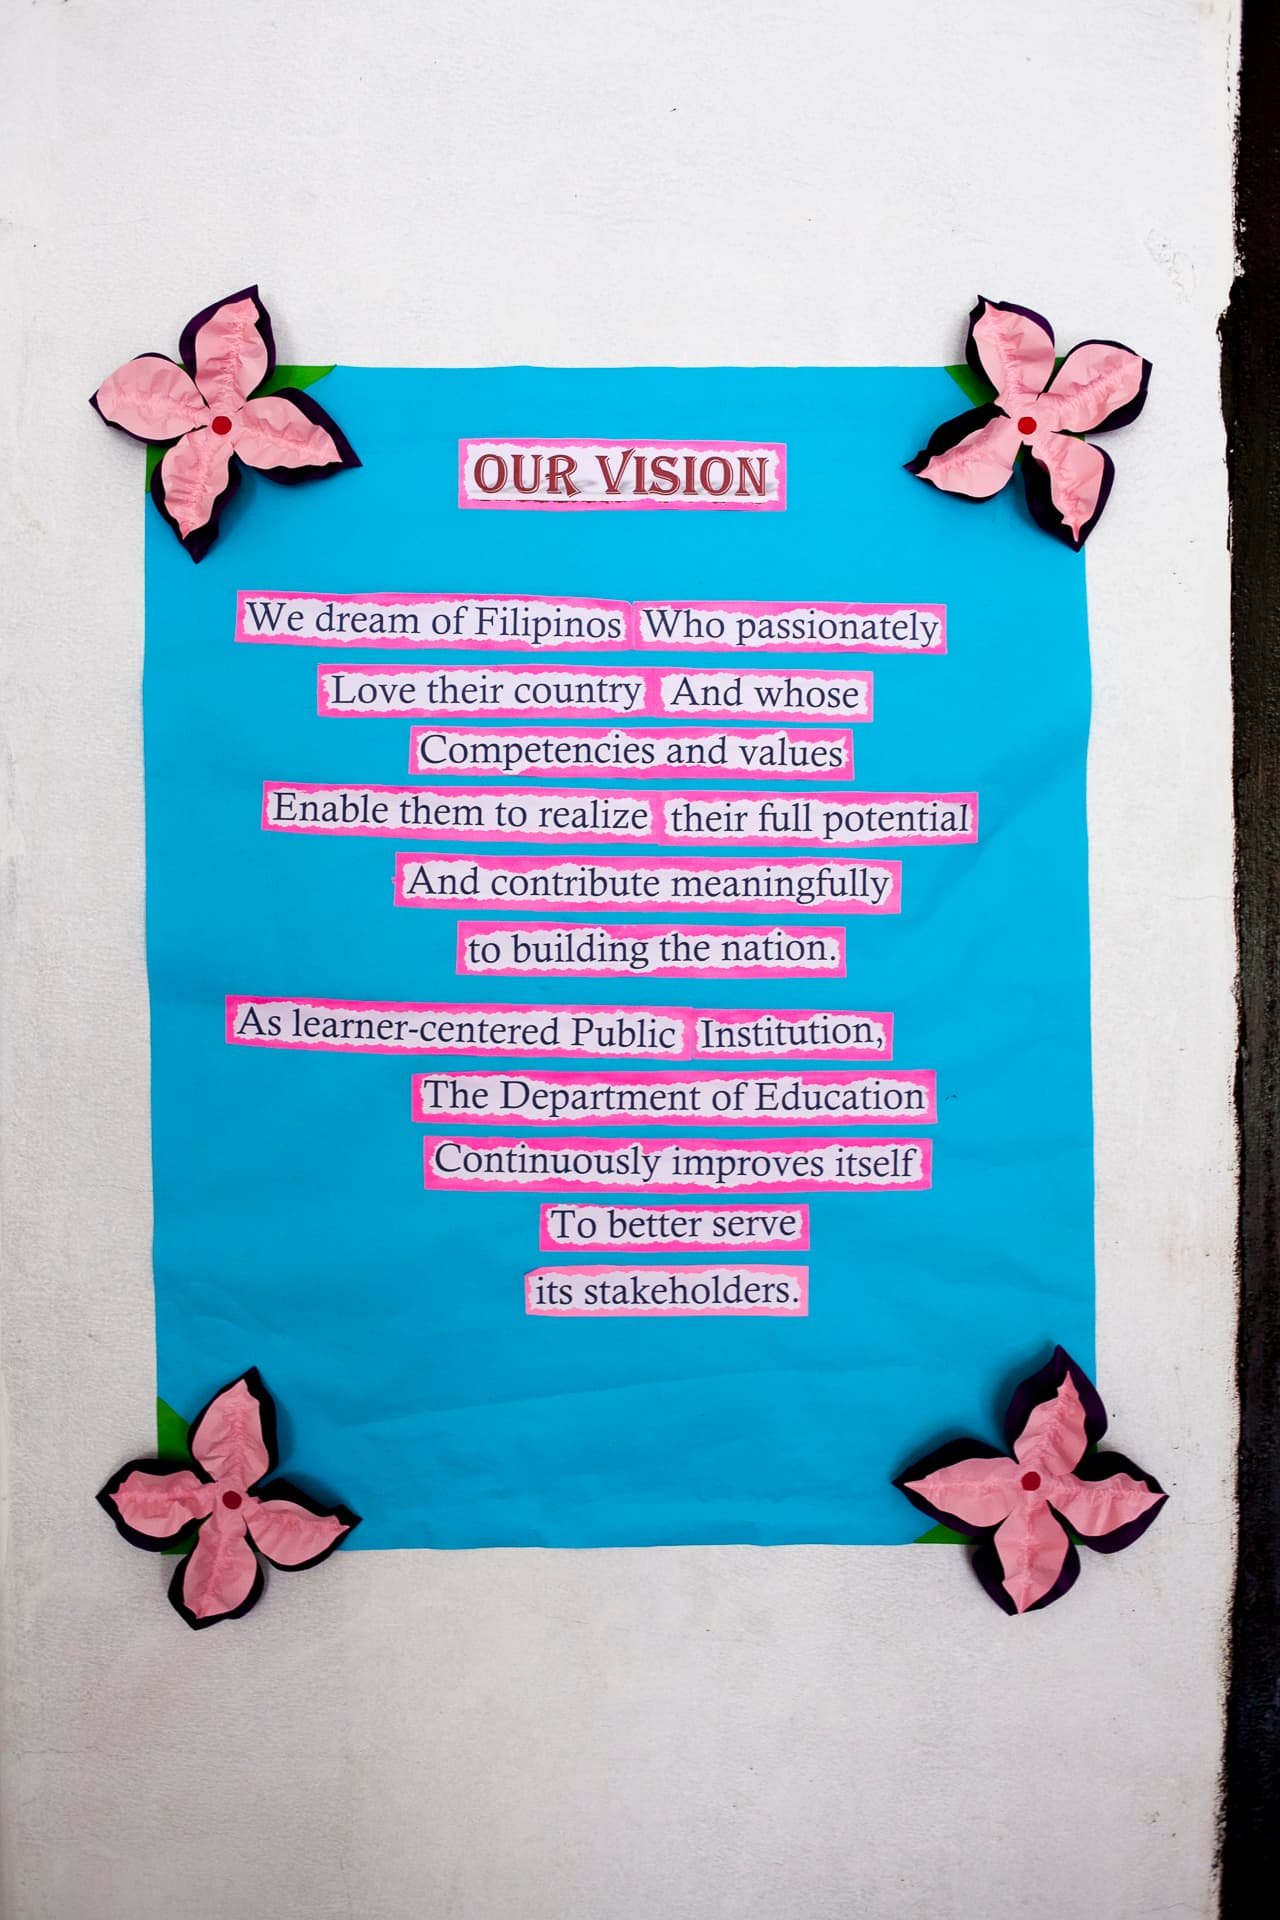 OUR VISION
We dream of Filipinos Who passionately
Love their country And whose
Competencies and values
Enable them to realize their full potential
And contribute meaningfully
to building the nation.
As learner-centered Public Institution,
The Department of Education
Continuously improves itself
To better serve
its stakeholders.